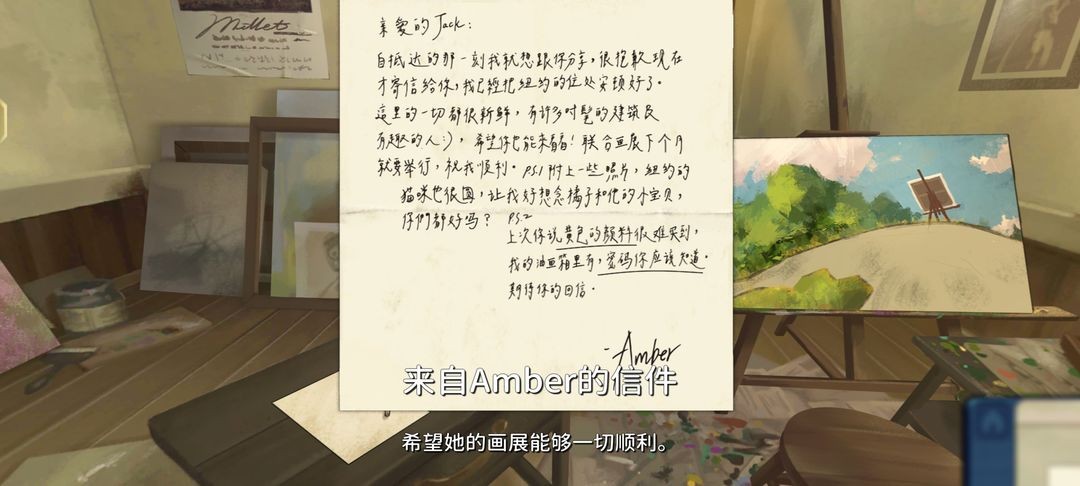 Millet
亲爱的Jack：
自抵达的那一刻我就想跟你分享，很抱歉现在
才寄信给你，我已經把纽约的住处安頓好了。
這里的一切都很新鮮，有许多时髦的建筑及
有趣的人:)，希望你也能来看看！联合画展下个月
就要举行，祝我顺利。P.S.1 附上一些照片，纽约的
猫咪也很圆，让我好想念橘子和他的小宝贝，
你們都好吗？ P.S.2
上次你说黄色的颜料很难买到，
我的油画箱里有，密码你应该知道。
期待你的回信。
-Amber
来自Amber的信件
希望她的画展能够一切顺利。